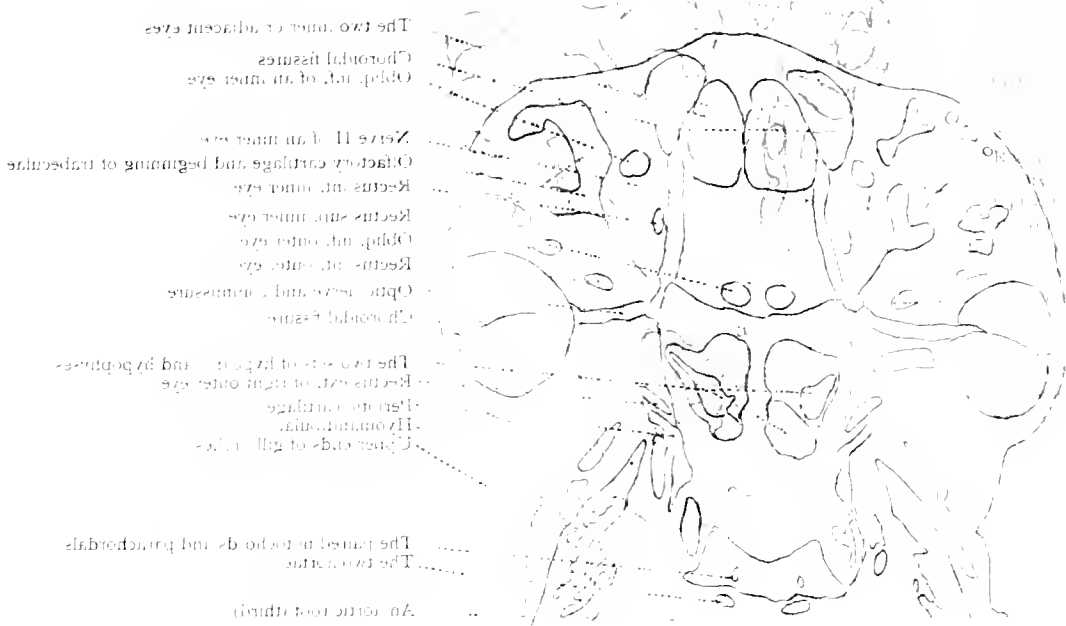 The two inner or adjacent eyes
Choroidal fissures
Obliq. inf. of an inner eye
Nerve II of an inner eye
Olfactory cartilage and beginning of trabeculae
Rectus int. inner eye
Rectus sup. inner eye
Obliq. inf. outer eye
Rectus inf. outer eye
Optic nerve and commissure
Choroidal fissure
The two sets of and hypophyses
Rectus ext. of right outer eye
Periotic cartilage
Upper ends of gill
The paired notochords and parachordals
The two aortae
An aortic root (third)